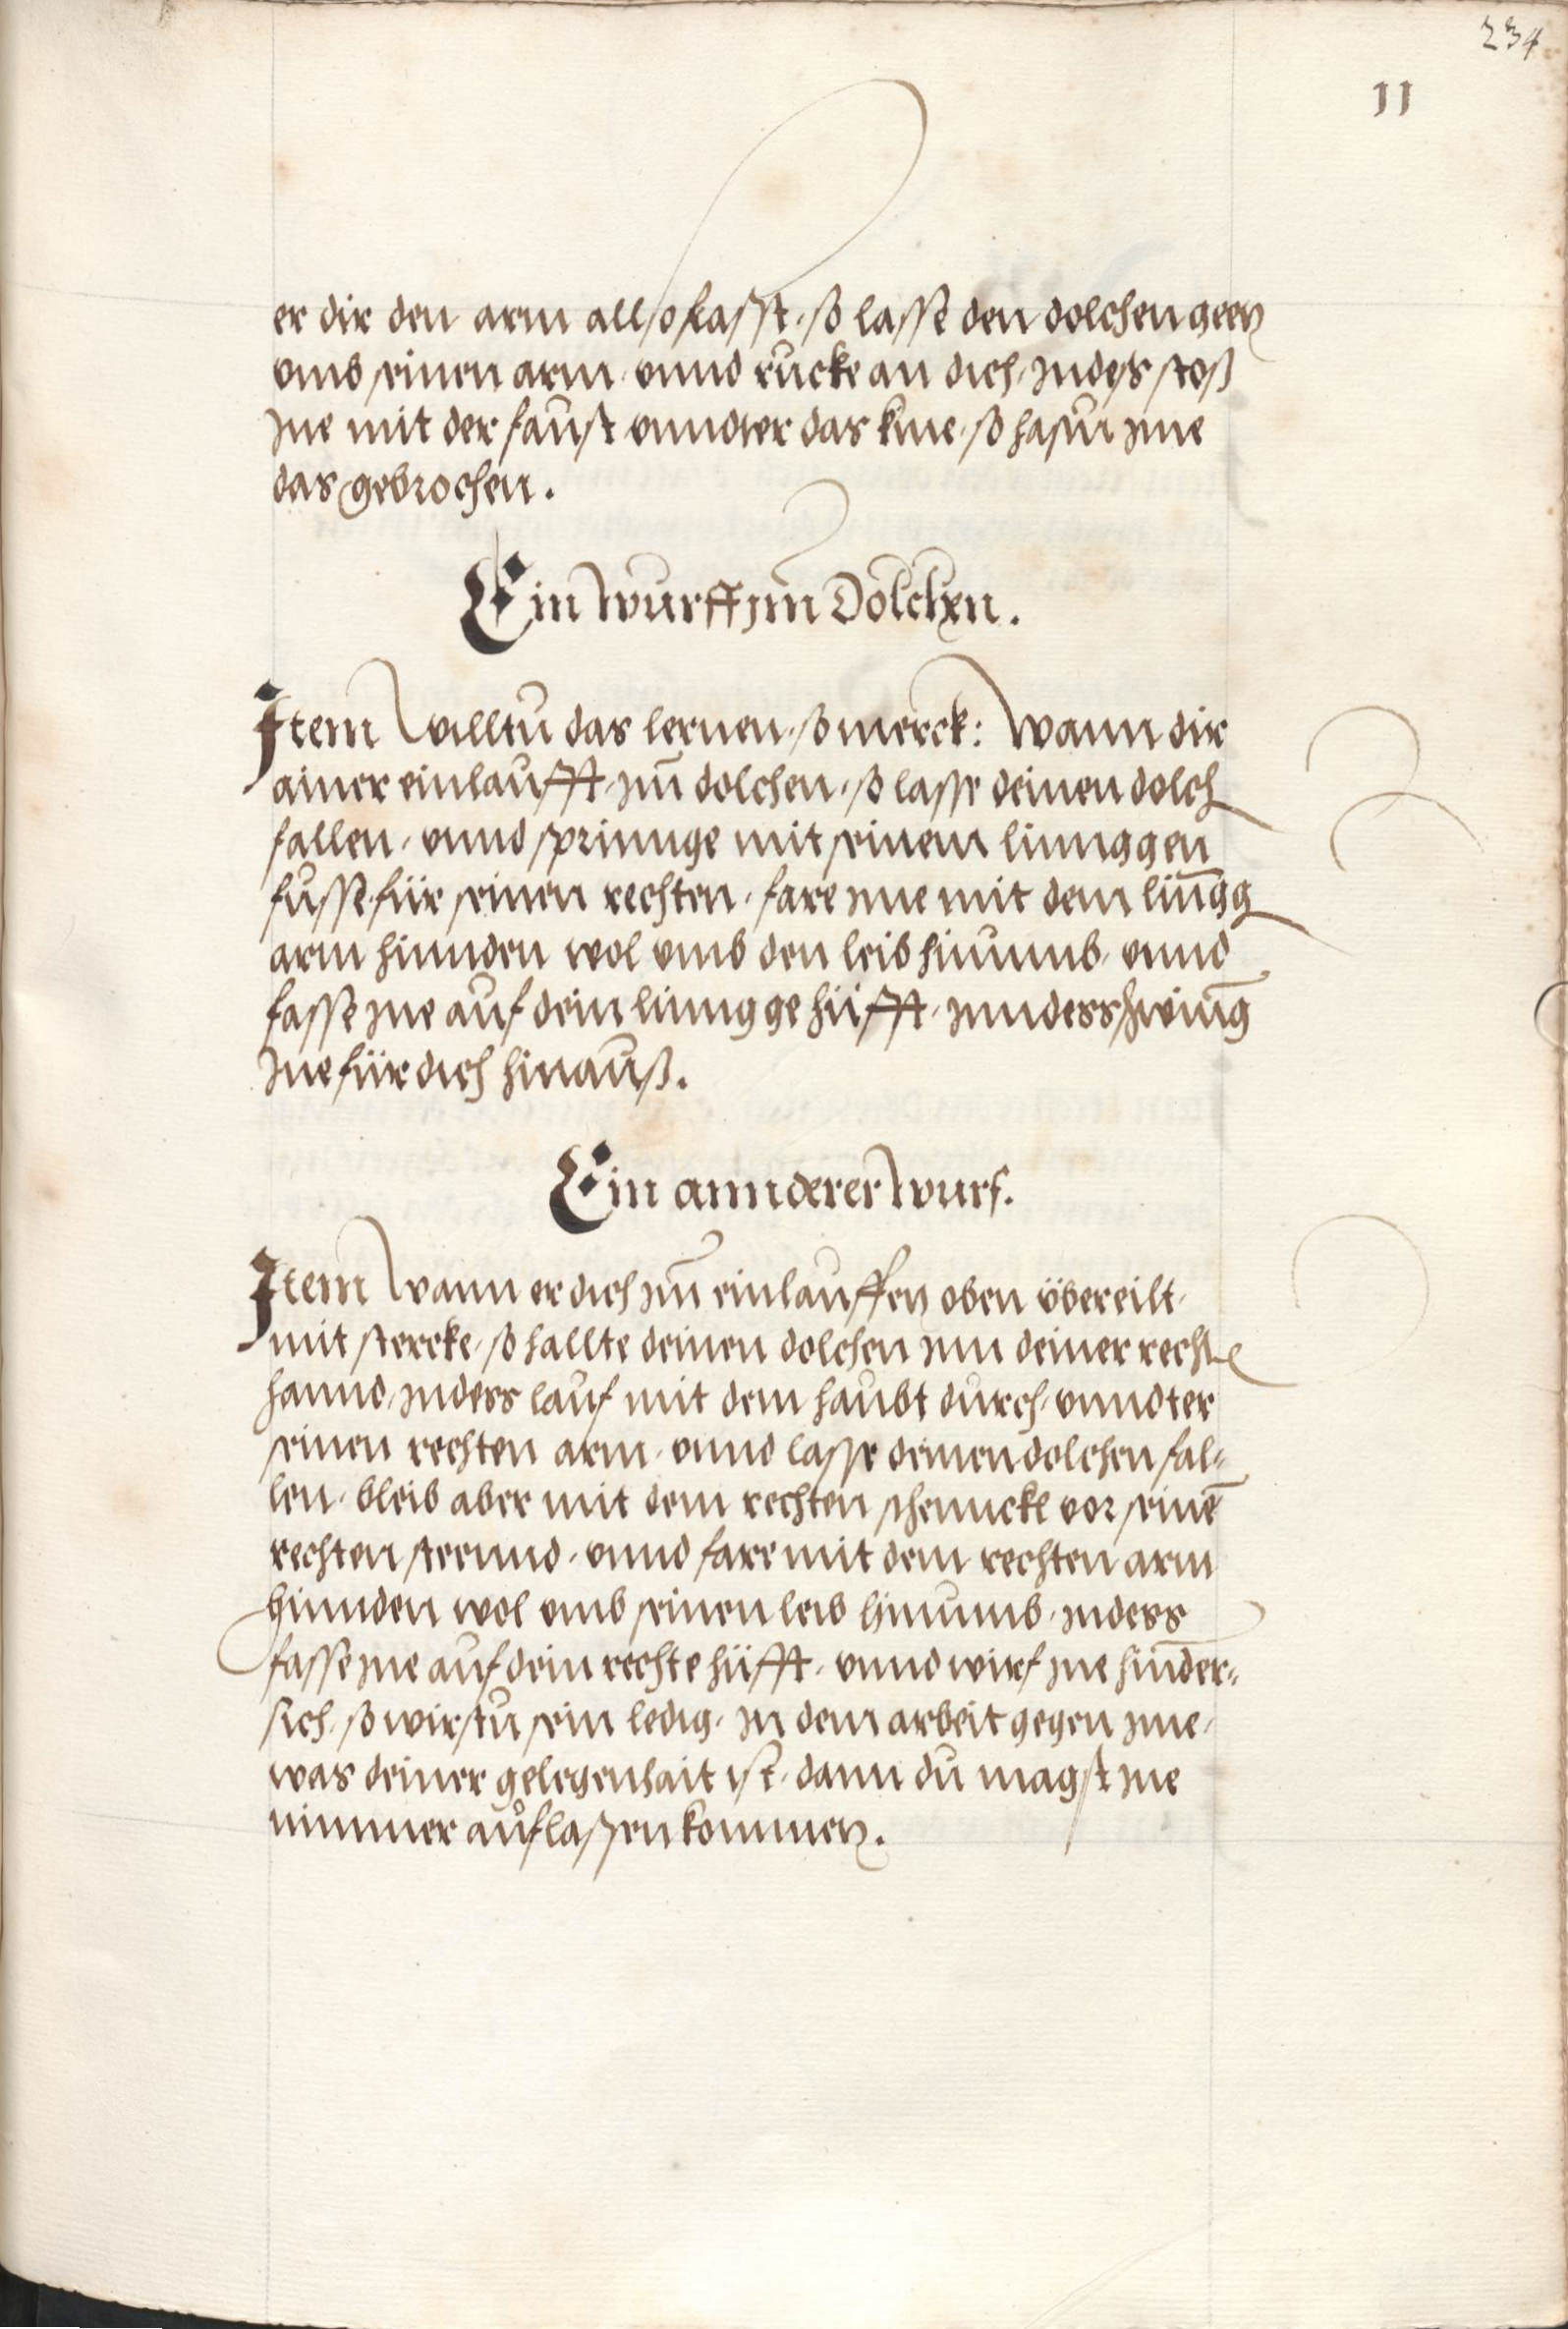 234
11
er dir den arm allso fasst, so lasse den dolchen geen
umb seinen arm, unnd rucke an dich, Indess stoß
Ine mit der faust unndter das knie, so hastu Ime
das gebrochen.
Ein Wurff im Dolchen.
Item Willtu das lernen, so merck: Wann dir
ainer einlaufft, Im̄ dolchen, so lasse deinen dolch
fallen, unnd sprinnge mit seinem linnggen
fusse für seinen rechten, fare Ime mit dem linngg
arm hinnden wol umb den leib hinumb, unnd
fasse Ine auf dein linngge hüfft, Inndess schwing
Ine für dich hinauß.
Ein annderer Wurf.
Item Wann er dich Im̄ einlauffen oben übereilt,
mit stercke, so hallte deinen dolchen Inn deiner rechte
hannd, Indess lauf mit dem haubt durch, unndter
seinen rechten arm, unnd lasse deinen dolchen fal=
len, bleib aber mit dem rechten schennckl vor seinē
rechten steennd, unnd fare mit dem rechten arm
hinnden wol umb seinen leib hinumb, Indess
fasse Ine auf dein rechte hüfft, unnd wirf Ine hinder=
sich, so wirstu sein ledig, In dem arbeit gegen Ime,
was deiner gelegenhait ist, dann du magst Ine
nimmer auf laßen kommen.